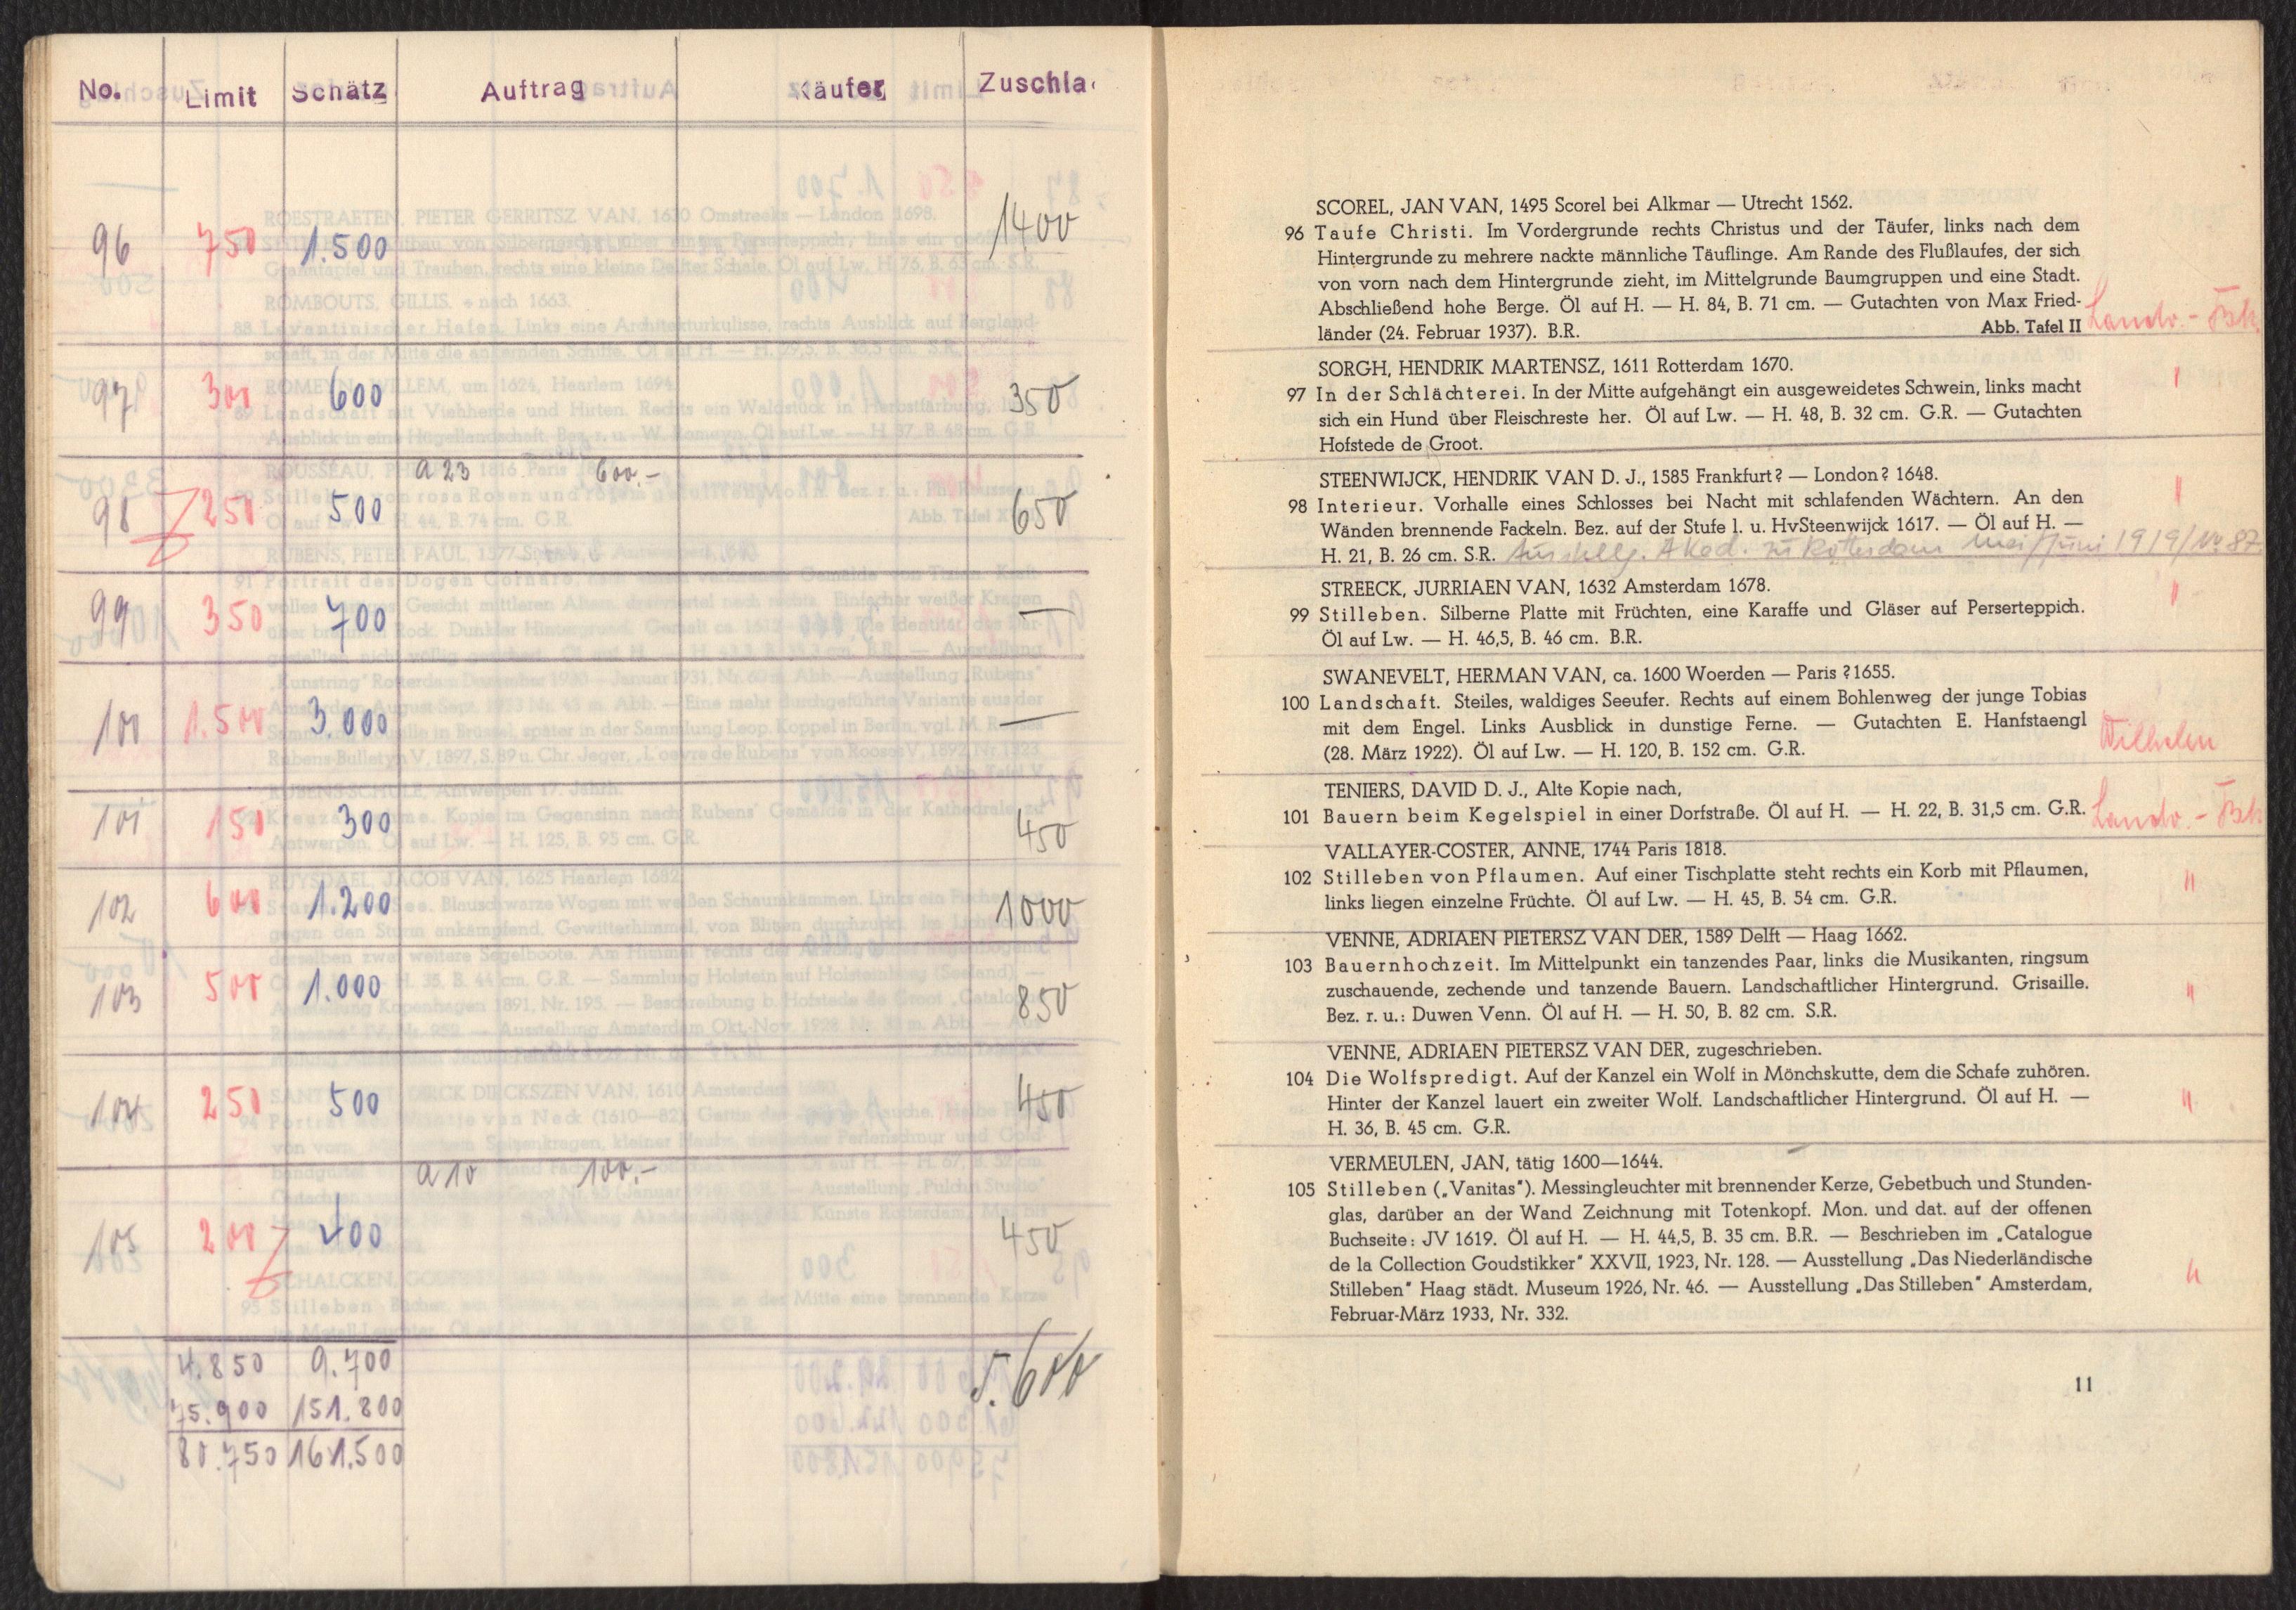 No. Limit Schätz Auftrag Käufer Zuschla
96 750 1.500 1400
97 300 600 350
a 23 600.-
98 250 500 650
99 350 700 —
100 1.500 3.000 —
101 150 300 450
102 600 1.200 1000
103 500 1.000 850
104 250 500 450
a 10 100.-
105 200 400 450
4.850 9.700 5.600
75.900 151.800
80.750 161.500
SCOREL, JAN VAN, 1495 Scorel bei Alkmar — Utrecht 1562.
96 Taufe Christi. Im Vordergrunde rechts Christus und der Täufer, links nach dem
Hintergrunde zu mehrere nackte männliche Täuflinge. Am Rande des Flußlaufes, der sich
von vorn nach dem Hintergrunde zieht, im Mittelgrunde Baumgruppen und eine Stadt.
Abschließend hohe Berge. Öl auf H. — H. 84, B. 71 cm. — Gutachten von Max Fried-
länder (24. Februar 1937). B.R. Abb. Tafel II
SORGH, HENDRIK MARTENSZ, 1611 Rotterdam 1670.
97 In der Schlächterei. In der Mitte aufgehängt ein ausgeweidetes Schwein, links macht
sich ein Hund über Fleischreste her. Öl auf Lw. — H. 48, B. 32 cm. G.R. — Gutachten
Hofstede de Groot.
STEENWIJCK, HENDRIK VAN D. J., 1585 Frankfurt? — London? 1648.
98 Interieur. Vorhalle eines Schlosses bei Nacht mit schlafenden Wächtern. An den
Wänden brennende Fackeln. Bez. auf der Stufe l. u. HvSteenwijck 1617. — Öl auf H. —
H. 21, B. 26 cm. S.R. Ausstellg. Akad. zu Rotterdam Mai/Juni 1919/No 87
STREECK, JURRIAEN VAN, 1632 Amsterdam 1678.
99 Stilleben. Silberne Platte mit Früchten, eine Karaffe und Gläser auf Perserteppich.
Öl auf Lw. — H. 46,5, B. 46 cm. B.R.
SWANEVELT, HERMAN VAN, ca. 1600 Woerden — Paris ?1655.
100 Landschaft. Steiles, waldiges Seeufer. Rechts auf einem Bohlenweg der junge Tobias
mit dem Engel. Links Ausblick in dunstige Ferne. — Gutachten E. Hanfstaengl
(28. März 1922). Öl auf Lw. — H. 120, B. 152 cm. G.R. Wilhelm
TENIERS, DAVID D. J., Alte Kopie nach,
101 Bauern beim Kegelspiel in einer Dorfstraße. Öl auf H. — H. 22, B. 31,5 cm. G.R.
VALLAYER-COSTER, ANNE, 1744 Paris 1818.
102 Stilleben von Pflaumen. Auf einer Tischplatte steht rechts ein Korb mit Pflaumen,
links liegen einzelne Früchte. Öl auf Lw. — H. 45, B. 54 cm. G.R.
VENNE, ADRIAEN PIETERSZ VAN DER, 1589 Delft — Haag 1662.
103 Bauernhochzeit. Im Mittelpunkt ein tanzendes Paar, links die Musikanten, ringsum
zuschauende, zechende und tanzende Bauern. Landschaftlicher Hintergrund. Grisaille.
Bez. r. u.: Duwen Venn. Öl auf H. — H. 50, B. 82 cm. S.R.
VENNE, ADRIAEN PIETERSZ VAN DER, zugeschrieben.
104 Die Wolfspredigt. Auf der Kanzel ein Wolf in Mönchskutte, dem die Schafe zuhören.
Hinter der Kanzel lauert ein zweiter Wolf. Landschaftlicher Hintergrund. Öl auf H. —
H. 36, B. 45 cm. G.R.
VERMEULEN, JAN, tätig 1600—1644.
105 Stilleben („Vanitas"). Messingleuchter mit brennender Kerze, Gebetbuch und Stunden-
glas, darüber an der Wand Zeichnung mit Totenkopf. Mon. und dat. auf der offenen
Buchseite: JV 1619. Öl auf H. — H. 44,5, B. 35 cm. B.R. — Beschrieben im „Catalogue
de la Collection Goudstikker" XXVII, 1923, Nr. 128. — Ausstellung „Das Niederländische
Stilleben" Haag städt. Museum 1926, Nr. 46. — Ausstellung „Das Stilleben" Amsterdam,
Februar-März 1933, Nr. 332.
11